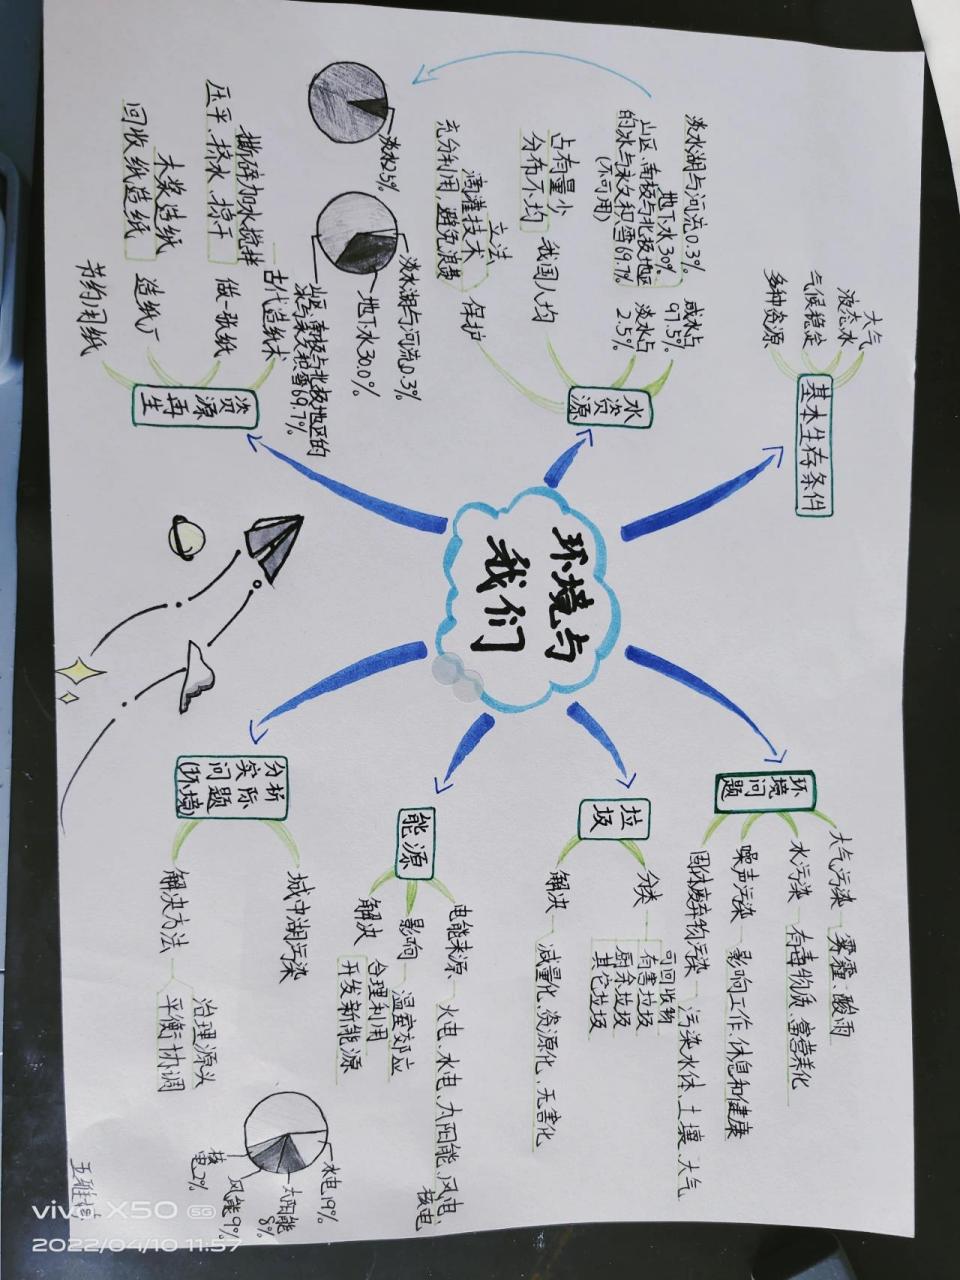 环境与
我们
基本生存条件
大气
液态水
气候稳定
多种资源
水资
源
咸水占
97.5%
淡水占
2.5%
淡水湖与河流0.3%
地下水30%
山区、南极与北极地区
的冰与永久积雪69.7%
(不可用)
我国人均
占有量少
分布不均
保护
立法
滴灌技术
充分利用,避免浪费
淡水2.5%
淡水湖与河流0.3%
地下水30.0%
山区、南极与北极地区的
冰与永久积雪69.7%
资
源
再
生
古代造纸术
做一张纸
撕碎加水搅拌
压平、挤水、掠干
造纸厂
木浆造纸
回收纸造纸
节约用纸
环
境
问
题
大气污染
雾霾、酸雨
水污染
有毒物质、富营养化
噪声污染
影响工作、休息和健康
固体废弃物污染
污染水体、土壤、大气
垃
圾
分类
可回收物
有害垃圾
厨余垃圾
其它垃圾
解决
减量化、资源化、无害化
能
源
电能来源
火电、水电、太阳能、风电
核电
影响
温室效应
解决
合理利用
开发新能源
分析
实际
问题
(环境)
城中湖污染
解决方法
治理源头
平衡协调
水电19%
太阳能
8%
风能9%
核
电2%
vivo X50 5G
2022/04/10 11:57